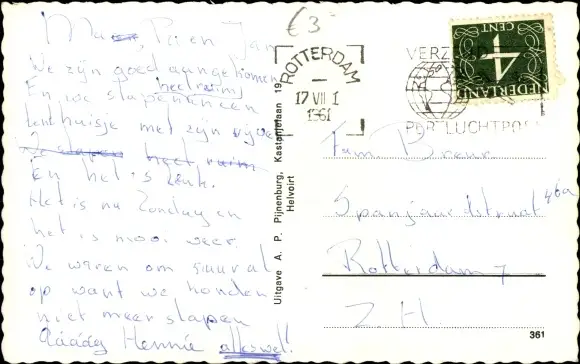 Ma, Pa en Jan
We zijn goed aangekomen
heel ruim
En we slapen in een
tenthuisje met zijn vijven
Ze slapen heel ruim
En het is leuk.
Het is nu Zondag en
het is mooi weer.
We waren om 5 uur al
op want we konden
niet meer slapen
dááág Hennie alleswel!
€3
ROTTERDAM
17 VII 1
1961
PER LUCHTPOST
4
CENT
NEDERLAND
Uitgave A. P. Pijnenburg, Kastanjelaan 19,
Helvoirt
Fam Breur
Spanjaardstraat 46a
Rotterdam 7
Z.H
361